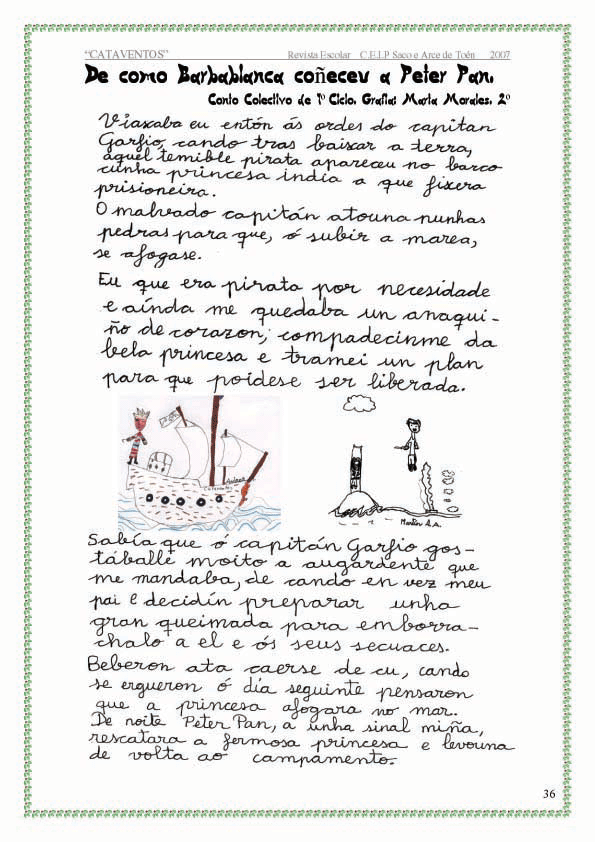 “CATAVENTOS” Revista Escolar C.E.I.P Saco e Arce de Toén 2007
De como Barbablanca coñeceu a Peter Pan.
Conto Colectivo de 1º Ciclo. Grafía: Marta Morales. 2º
Viaxaba eu entón ás ordes do capitan
Garfio, cando tras baixar a terra,
aquel temible pirata apareceu no barco
cunha princesa india a que fixera
prisioneira.
O malvado capitán atouna nunhas
pedras para que, ó subir a marea,
se afogase.
Eu que era pirata por necesidade
e aínda me quedaba un anaqui-
ño de corazon, compadecinme da
bela princesa e tramei un plan
para que poidese ser liberada.
Martín A.A.
Sabía que ó capitán Garfio gos-
táballe moito a augardente que
me mandaba, de cando en vez meu
pai e decidín preparar unha
gran queimada para emborra-
chalo a el e ós seus secuaces.
Beberon ata caerse de cu, cando
se ergueron ó día seguinte pensaron
que a princesa afogara no mar.
De noite Peter Pan, a unha sinal miña,
rescatara a fermosa princesa e levouna
de volta ao campamento.
36